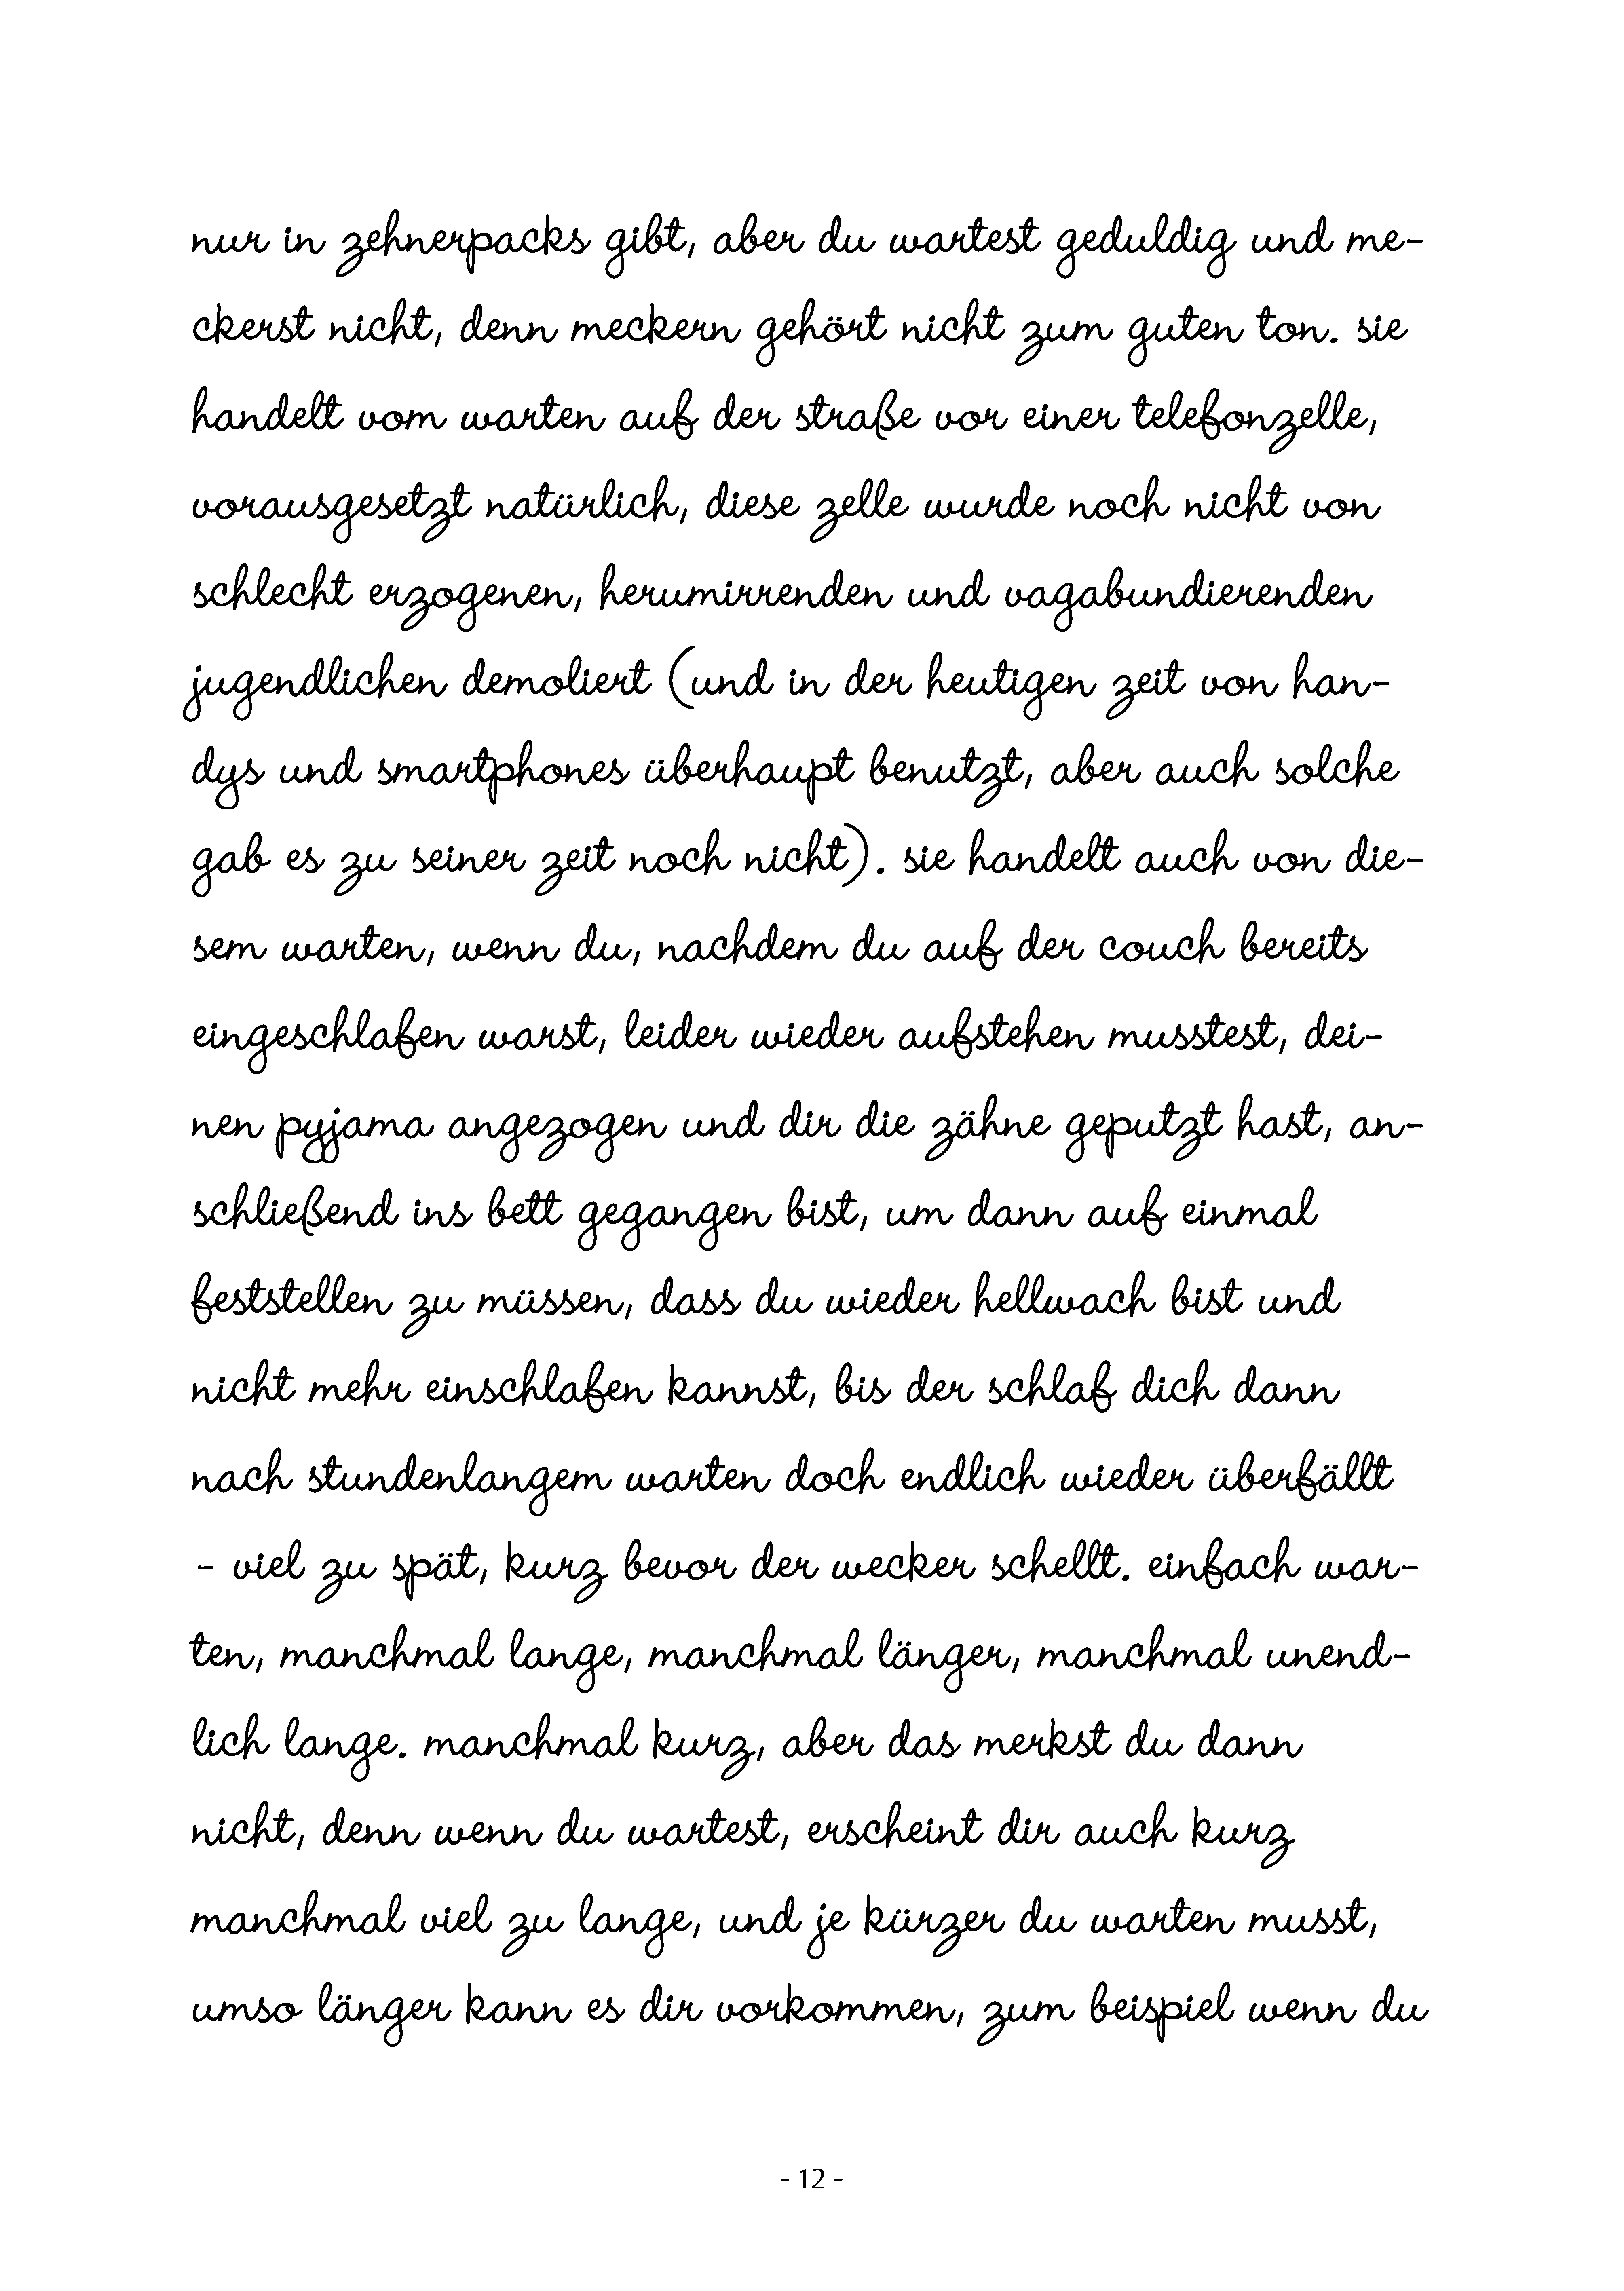 nur in zehnerpacks gibt, aber du wartest geduldig und me-
ckerst nicht, denn meckern gehört nicht zum guten ton. sie
handelt vom warten auf der straße vor einer telefonzelle,
vorausgesetzt natürlich, diese zelle wurde noch nicht von
schlecht erzogenen, herumirrenden und vagabundierenden
jugendlichen demoliert (und in der heutigen zeit von han-
dys und smartphones überhaupt benutzt, aber auch solche
gab es zu seiner zeit noch nicht). sie handelt auch von die-
sem warten, wenn du, nachdem du auf der couch bereits
eingeschlafen warst, leider wieder aufstehen musstest, dei-
nen pyjama angezogen und dir die zähne geputzt hast, an-
schließend ins bett gegangen bist, um dann auf einmal
feststellen zu müssen, dass du wieder hellwach bist und
nicht mehr einschlafen kannst, bis der schlaf dich dann
nach stundenlangem warten doch endlich wieder überfällt
- viel zu spät, kurz bevor der wecker schellt. einfach war-
ten, manchmal lange, manchmal länger, manchmal unend-
lich lange. manchmal kurz, aber das merkst du dann
nicht, denn wenn du wartest, erscheint dir auch kurz
manchmal viel zu lange, und je kürzer du warten musst,
umso länger kann es dir vorkommen, zum beispiel wenn du
- 12 -